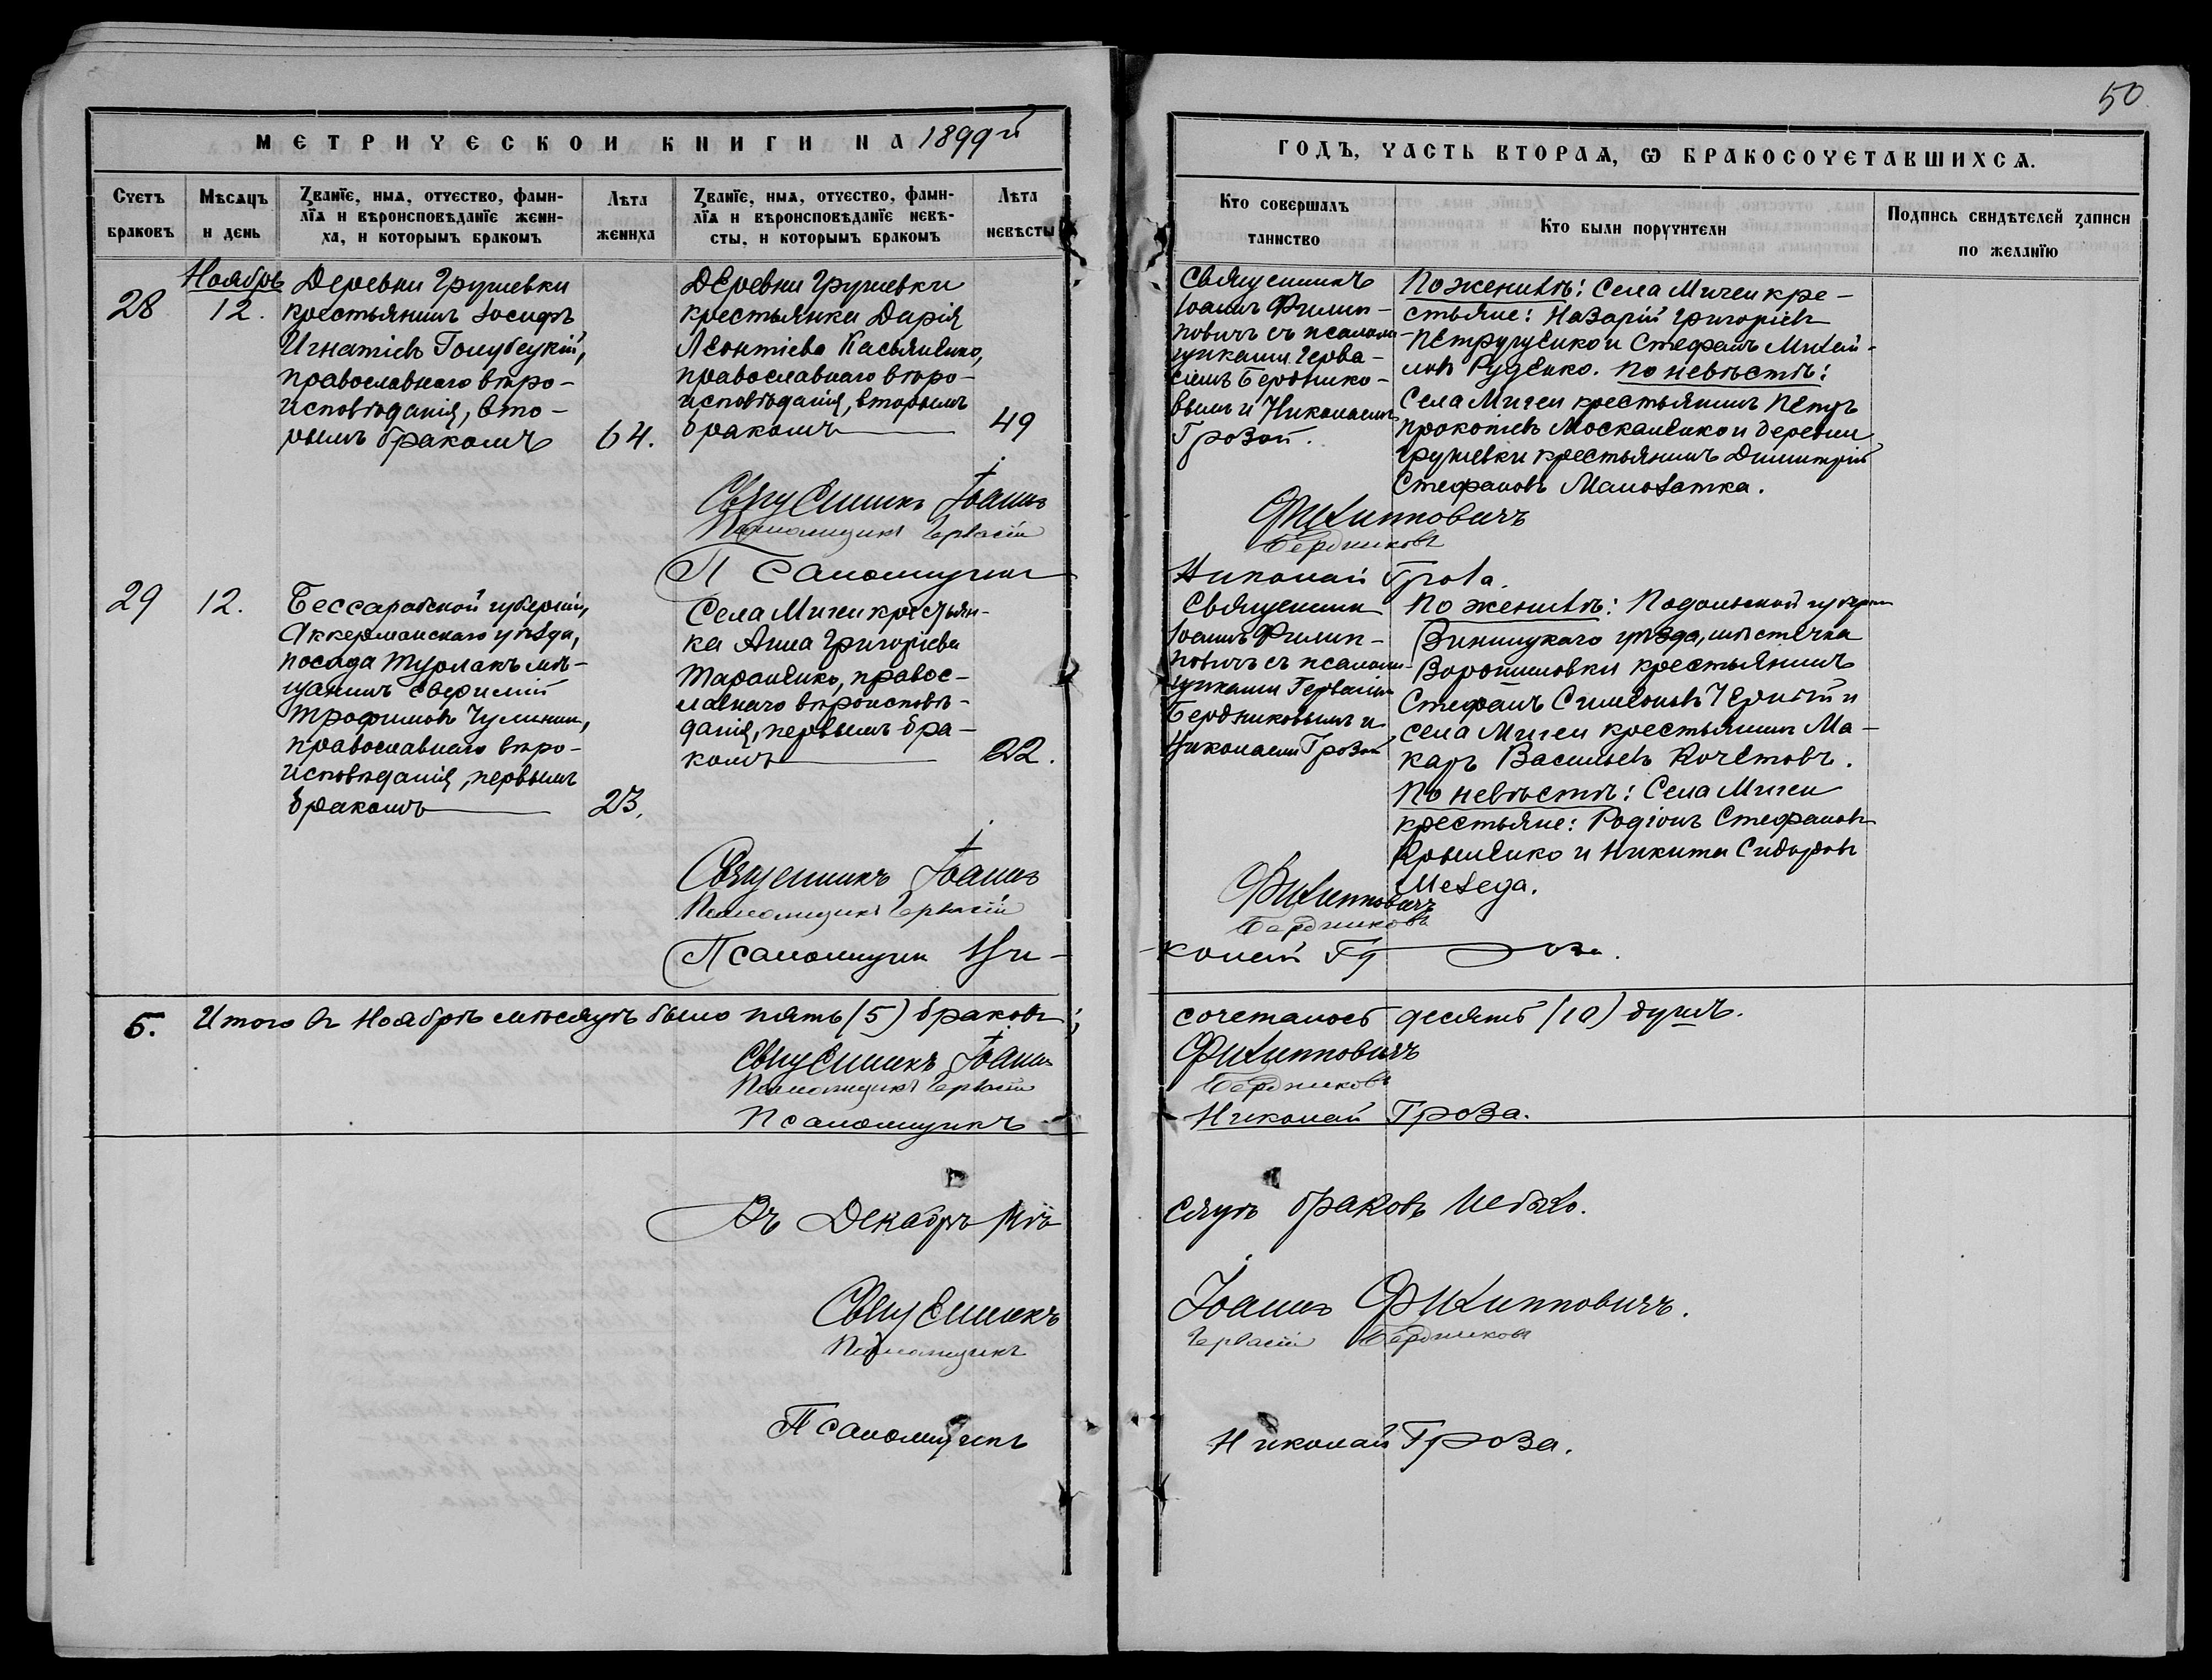 50
МЕТРИЧЕСКОЙ КНИГИ НА 1899й
ГОДЪ, ЧАСТЬ ВТОРАѦ, Ѡ БРАКОСОЧЕТАВШИХСѦ.
Счетъ браковъ
Мѣсѧцъ и день
Званїе, имѧ, отчество, фами-
лїѧ и вѣроисповѣданїе жени-
ха, и которымъ бракомъ
Лѣта жениха
Званїе, имѧ, отчество, фами-
лїѧ и вѣроисповѣданїе невѣ-
сты, и которымъ бракомъ
Лѣта невѣсты
Кто совершалъ таинство
Кто были поручители
Подпись свидѣтелей записи по желанїю
28
Ноябрь
12.
Деревни Грушевки
крестьянинъ Іосифъ
Игнатіевъ Голубецкій,
православнаго вѣро-
исповѣданія, вто-
рымъ бракомъ
64.
Деревни Грушевки
крестьянка Дарія
Леонтіева Касьяненко,
православнаго вѣро-
исповѣданія, вторымъ
бракомъ
49
Священникъ
Іоаннъ Филип-
повичъ съ псалом-
щиками Герва-
сіемъ Берднико-
вымъ и Николаемъ
Грозой.
По женихѣ: Села Мигеи кре-
стьяне: Назарій Григоріевъ
Петрущенко и Стефанъ Михай-
ловъ Руденко. По невѣстѣ:
Села Мигеи крестьянинъ Петръ
Прокопіевъ Москаленко и деревни
Грушевки крестьянинъ Димитрій
Стефановъ Малохатка.
Священникъ Іоаннъ Филипповичъ
Псаломщикъ Гервасій Бердниковъ
Псаломщикъ Николай Гроза.
29
12.
Бессарабской губерніи,
Аккерманскаго уѣзда,
посада Турлакъ мѣ-
щанинъ Евфимій
Трофимовъ
православнаго вѣро-
исповѣданія, первымъ
бракомъ
23.
Села Мигеи крестьян-
ка Анна Григоріева
Тараненко, правос-
лавнаго вѣроисповѣ-
данія, первымъ бра-
комъ
22.
Священникъ
Іоаннъ Филип-
повичъ съ псалом-
щиками Гервасіемъ
Бердниковымъ и
Николаемъ Грозой
По женихѣ: Подольской губерніи
Винницкаго уѣзда, мѣстечка
Ворошиловки крестьянинъ
Стефанъ Симеоновъ Черный и
села Мигеи крестьянинъ Ма-
каръ Васильевъ Кочетовъ.
По невѣстѣ: Села Мигеи
крестьяне: Родіонъ Стефановъ
Крыленко и Никита Сидоровъ
Мехеда.
Священникъ Іоаннъ Филипповичъ
Псаломщикъ Гервасій Бердниковъ
Псаломщикъ Ни-
колай Гроза.
5. Итого въ Ноябрѣ мѣсяцѣ было пять (5) браковъ; сочеталось десять (10) душъ.
Священникъ Іоаннъ Филипповичъ
Псаломщикъ Гервасій Бердниковъ
Псаломщикъ Николай Гроза.
Въ Декабрѣ мѣ-
сяцѣ браковъ не было.
Священникъ Іоаннъ Филипповичъ.
Псаломщикъ Гервасій Бердниковъ
Псаломщикъ Николай Гроза.